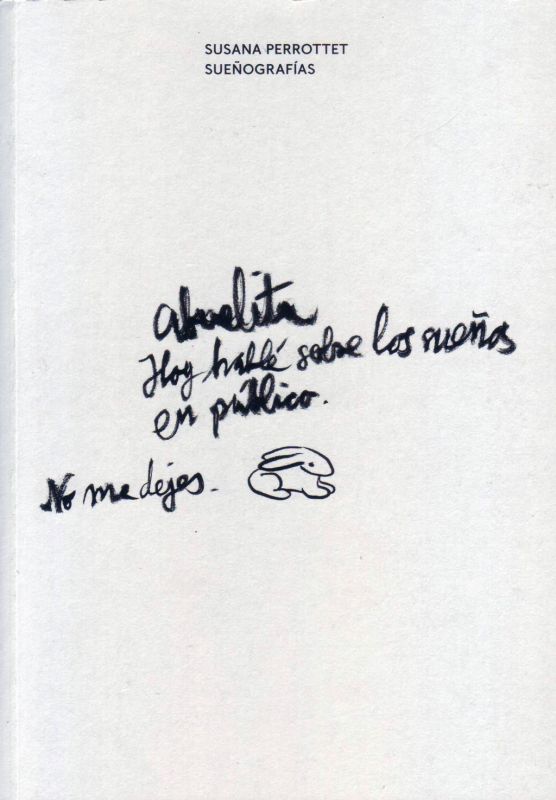 SUSANA PERROTTET
SUEÑOGRAFÍAS
abuelita
Hoy hablé sobre los sueños
en público.
No me dejes.